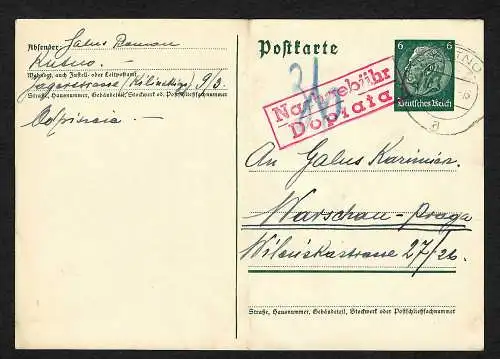 Absender: Galus Roman
Kutno. —
Wohnort, auch Zustell- oder Leitpostamt
Jägerstrasse (Kilińskiego) 9/3.
Straße, Hausnummer, Gebäudeteil, Stockwerk od. Postschließfachnummer
Postkarte
Nachgebühr
Dopłata
6 6
Deutsches Reich
a
An Galus Kazimierz
Warschau-Praga
Wileńskastrasse 27/26.
Straße, Hausnummer, Gebäudeteil, Stockwerk oder Postschließfachnummer